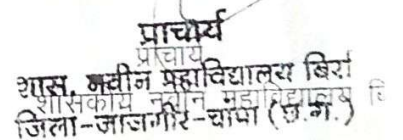 प्राचार्य
प्राचार्य
शास. नवीन महाविद्यालय बिर्रा
शासकीय नवीन महाविद्यालय बि
जिला-जांजगीर-चांपा (छ.ग.)